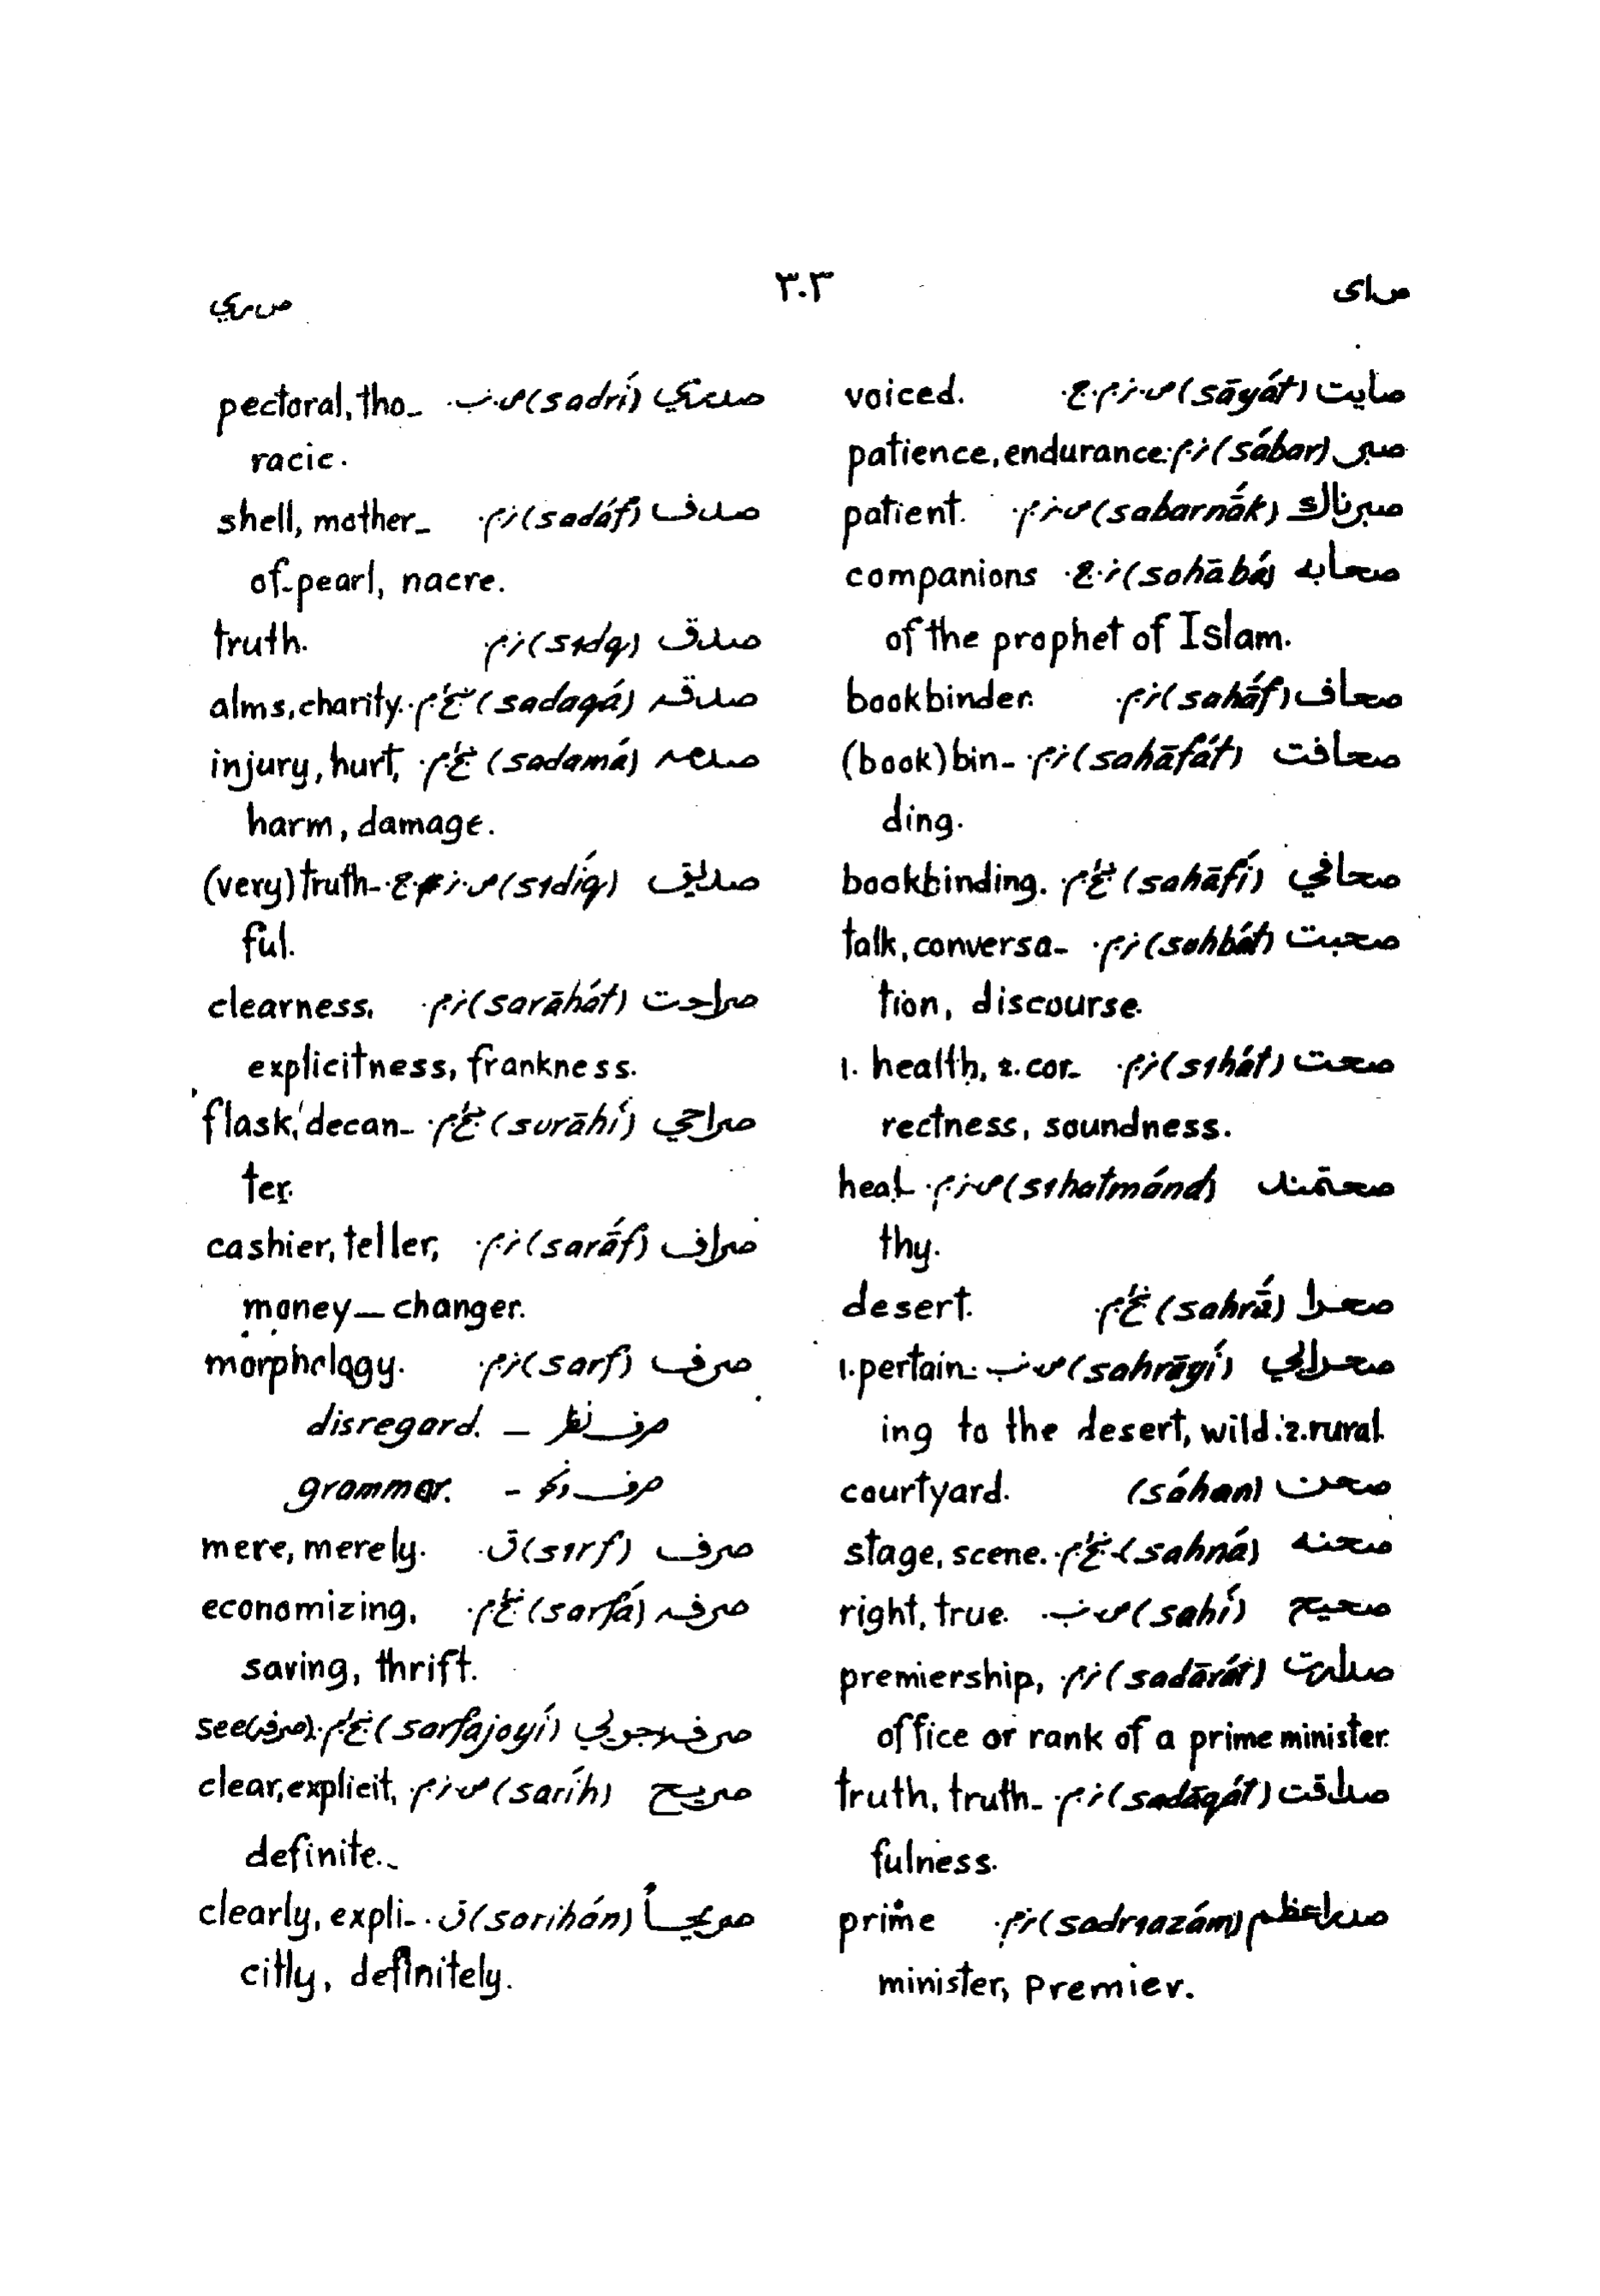 ص ای ٣٠٣ ص ري
صایت (sāyát) ص.ن.م.ج. voiced.
صبر (sábar) ن.م. patience, endurance.
صبرناک (sabarnā́k) ص.ن.م. patient.
صحابه (sohābá) ن.ج. companions
of the prophet of Islam.
صحاف (sahā́f) ن.م. bookbinder.
صحافت (sahāfát) ن.م. (book) bin-
ding.
صحافي (sahāfí) ښځ.م. bookbinding.
صحبت (sohbát) ن.م. talk, conversa-
tion, discourse.
صحت (sɪhát) ن.م. 1. health, 2. cor-
rectness, soundness.
صحتمند (sɪhatmánd) ص.ن.م. heal-
thy.
صحرا (sahrā́) ښځ.م. desert.
صحرايي (sahrāyí) ص.ب. 1. pertain-
ing to the desert, wild. 2. rural
صحن (sáhan) courtyard.
صحنه (sahná) ښځ.م. stage, scene.
صحیح (sahí) ص.ب. right, true.
صدارت (sadārát) ن.م. premiership,
office or rank of a prime minister.
صداقت (sadāqát) ن.م. truth, truth-
fulness.
صدراعظم (sadrɪazám) ن.م. prime
minister, Premier.
صدري (sadrí) ص.ب. pectoral, tho-
racic.
صدف (sadáf) ن.م. shell, mother-
of-pearl, nacre.
صدق (sɪdq) ن.م. truth.
صدقه (sadaqá) ښځ.م. alms, charity.
صدمه (sadamá) ښځ.م. injury, hurt,
harm, damage.
صدیق (sɪdíq) ص.ن.م.ج. (very) truth-
ful.
صراحت (sarāhát) ن.م. clearness,
explicitness, frankness.
صراحي (surāhí) ښځ.م. flask, decan-
ter.
صراف (sarā́f) ن.م. cashier, teller,
money-changer.
صرف (sarf) ن.م. morphology.
صرف نظر - disregard.
صرف ونحو - grammar.
صرف (sɪrf) ق. mere, merely.
صرفه (sarfá) ښځ.م. economizing,
saving, thrift.
صرفه جويي (sarfajoyí) ښځ.م. see (صرفه).
صریح (saríh) ص.ن.م. clear, explicit,
definite.
صریحاً (sarihán) ق. clearly, expli-
citly, definitely.